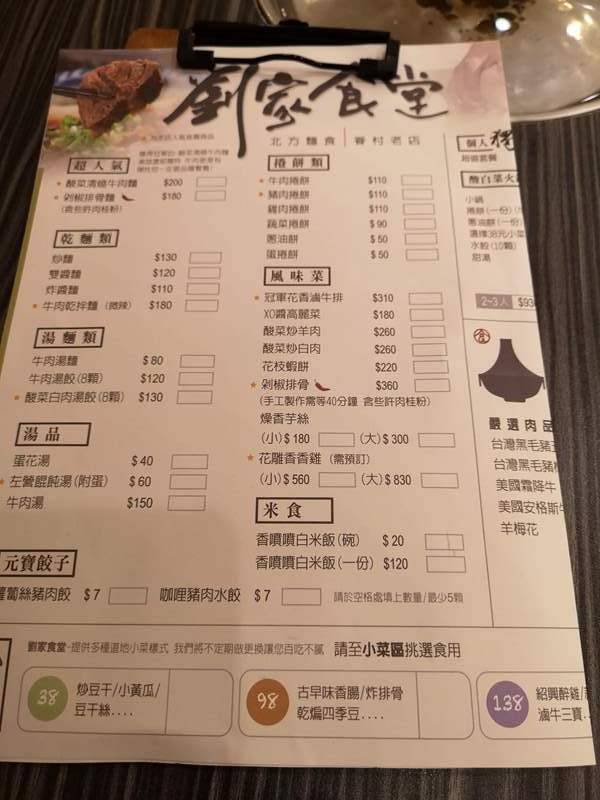 劉家食堂
北方麵食 | 眷村老店
★為本店人氣推薦商品
超人氣
★ 酸菜清燉牛肉麵 $200
★ 剁椒排骨麵 $180
(含些許肉桂粉)
乾麵類
炒麵 $130
雙醬麵 $120
炸醬麵 $110
★ 牛肉乾拌麵 (微辣) $180
湯麵類
牛肉湯麵 $80
牛肉湯餃(8顆) $120
★ 酸菜白肉湯餃(8顆) $130
湯品
蛋花湯 $40
★ 左營餛飩湯(附蛋) $60
牛肉湯 $150
捲餅類
★ 牛肉捲餅 $110
★ 豬肉捲餅 $110
雞肉捲餅 $110
蔬菜捲餅 $90
蔥油餅 $50
蛋捲餅 $50
風味菜
★ 冠軍花香滷牛排 $310
XO醬高麗菜 $180
酸菜炒羊肉 $260
酸菜炒白肉 $260
花枝蝦餅 $220
★ 剁椒排骨 $360
(手工製作需等40分鐘 含些許肉桂粉)
燥香芋絲
(小) $180 (大) $300
★ 花雕香香雞 (需預訂)
(小) $560 (大) $830
米食
香噴噴白米飯(碗) $20
香噴噴白米飯(一份) $120
元寶餃子
蘿蔔絲豬肉餃 $7 咖哩豬肉水餃 $7 請於空格處填上數量/最少5顆
個人
超值套餐
酸白菜火
小鍋
捲餅(一份)
蔥油餅(一份)
選擇
水餃(10顆)
甜湯
2~3人 $93
嚴選肉品
台灣黑毛豬
台灣黑毛豬
美國霜降牛
美國安格斯牛
羊梅花
劉家食堂-提供多種道地小菜樣式,我們將不定期做更換讓您百吃不膩 請至小菜區挑選食用
38 炒豆干/小黃瓜/
豆干絲....
98 古早味香腸/炸排骨
乾煸四季豆....
138 紹興醉雞/
滷牛三寶..